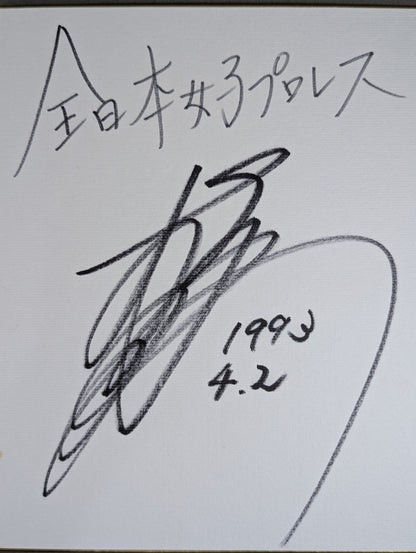 全日本女子プロレス
1993
4.2